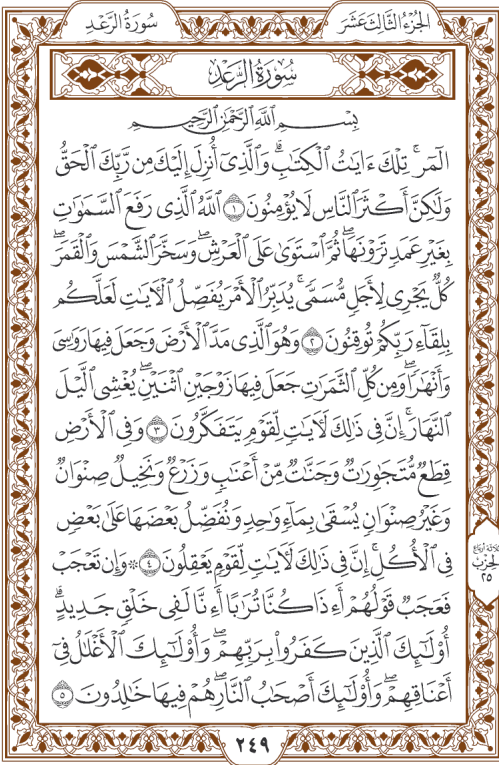 الجُزءُ الثَّالِثَ عَشَرَ
سُورَةُ الرَّعْدِ
سُورَةُ الرَّعْدِ
بِسْمِ اللَّهِ الرَّحْمَٰنِ الرَّحِيمِ
الٓمٓرۚ تِلْكَ ءَايَٰتُ ٱلْكِتَٰبِۗ وَٱلَّذِىٓ أُنزِلَ إِلَيْكَ مِن رَّبِّكَ ٱلْحَقُّ
وَلَٰكِنَّ أَكْثَرَ ٱلنَّاسِ لَا يُؤْمِنُونَ ١ ٱللَّهُ ٱلَّذِى رَفَعَ ٱلسَّمَٰوَٰتِ
بِغَيْرِ عَمَدٍ تَرَوْنَهَاۖ ثُمَّ ٱسْتَوَىٰ عَلَى ٱلْعَرْشِۖ وَسَخَّرَ ٱلشَّمْسَ وَٱلْقَمَرَۖ
كُلٌّ يَجْرِى لِأَجَلٍ مُّسَمًّىۚ يُدَبِّرُ ٱلْأَمْرَ يُفَصِّلُ ٱلْءَايَٰتِ لَعَلَّكُم
بِلِقَآءِ رَبِّكُمْ تُوقِنُونَ ٢ وَهُوَ ٱلَّذِى مَدَّ ٱلْأَرْضَ وَجَعَلَ فِيهَا رَوَٰسِىَ
وَأَنْهَٰرًاۖ وَمِن كُلِّ ٱلثَّمَرَٰتِ جَعَلَ فِيهَا زَوْجَيْنِ ٱثْنَيْنِۖ يُغْشِى ٱلَّيْلَ
ٱلنَّهَارَۚ إِنَّ فِى ذَٰلِكَ لَءَايَٰتٍ لِّقَوْمٍ يَتَفَكَّرُونَ ٣ وَفِى ٱلْأَرْضِ
قِطَعٌ مُّتَجَٰوِرَٰتٌ وَجَنَّٰتٌ مِّنْ أَعْنَٰبٍ وَزَرْعٌ وَنَخِيلٌ صِنْوَانٌ
وَغَيْرُ صِنْوَانٍ يُسْقَىٰ بِمَآءٍ وَٰحِدٍ وَنُفَضِّلُ بَعْضَهَا عَلَىٰ بَعْضٍ
فِى ٱلْأُكُلِۚ إِنَّ فِى ذَٰلِكَ لَءَايَٰتٍ لِّقَوْمٍ يَعْقِلُونَ ٤ ۞ وَإِن تَعْجَبْ
فَعَجَبٌ قَوْلُهُمْ أَءِذَا كُنَّا تُرَٰبًا أَءِنَّا لَفِى خَلْقٍ جَدِيدٍۗ
أُو۟لَٰٓئِكَ ٱلَّذِينَ كَفَرُوا۟ بِرَبِّهِمْۖ وَأُو۟لَٰٓئِكَ ٱلْأَغْلَٰلُ فِىٓ
أَعْنَاقِهِمْۖ وَأُو۟لَٰٓئِكَ أَصْحَٰبُ ٱلنَّارِۖ هُمْ فِيهَا خَٰلِدُونَ ٥
ثلاثة أرباع
الحِزب
٢٥
٢٤٩